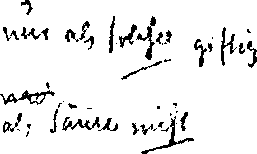 nur als solches giftig
als Säure nicht